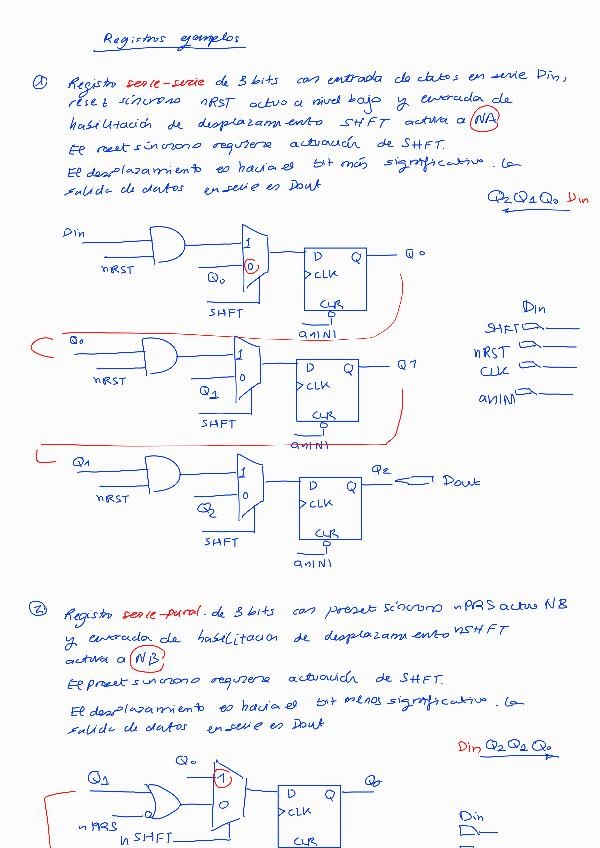 Registros ejemplos
1 Registro serie-serie de 3 bits con entrada de datos en serie Din,
reset síncrono nRST activo a nivel bajo y entrada de
habilitación de desplazamiento SHFT activa a NA
El reset síncrono requiere actuación de SHFT.
El desplazamiento es hacia el bit más significativo. La
salida de datos en serie es Dout
Q2 Q1 Q0 Din
Din
nRST
1
0
Q0
SHFT
D Q
CLK
CLR
anINI
Q0
Din
SHFT
nRST
CLK
anINI
Q0
nRST
1
0
Q1
SHFT
D Q
CLK
CLR
anINI
Q1
Q1
nRST
1
0
Q2
SHFT
D Q
CLK
CLR
anINI
Q2
Dout
2 Registro serie-paral. de 3 bits con preset síncrono nPRS activo NB
y entrada de habilitacion de desplazamiento nSHFT
activa a NB
El preset sincrono requiere actuación de SHFT.
El desplazamiento es hacia el bit menos significativo. La
salida de datos en serie es Dout
Din Q2 Q1 Q0
Q0
Q1
nPRS
nSHFT
1
0
D Q
CLK
CLR
Q0
Din